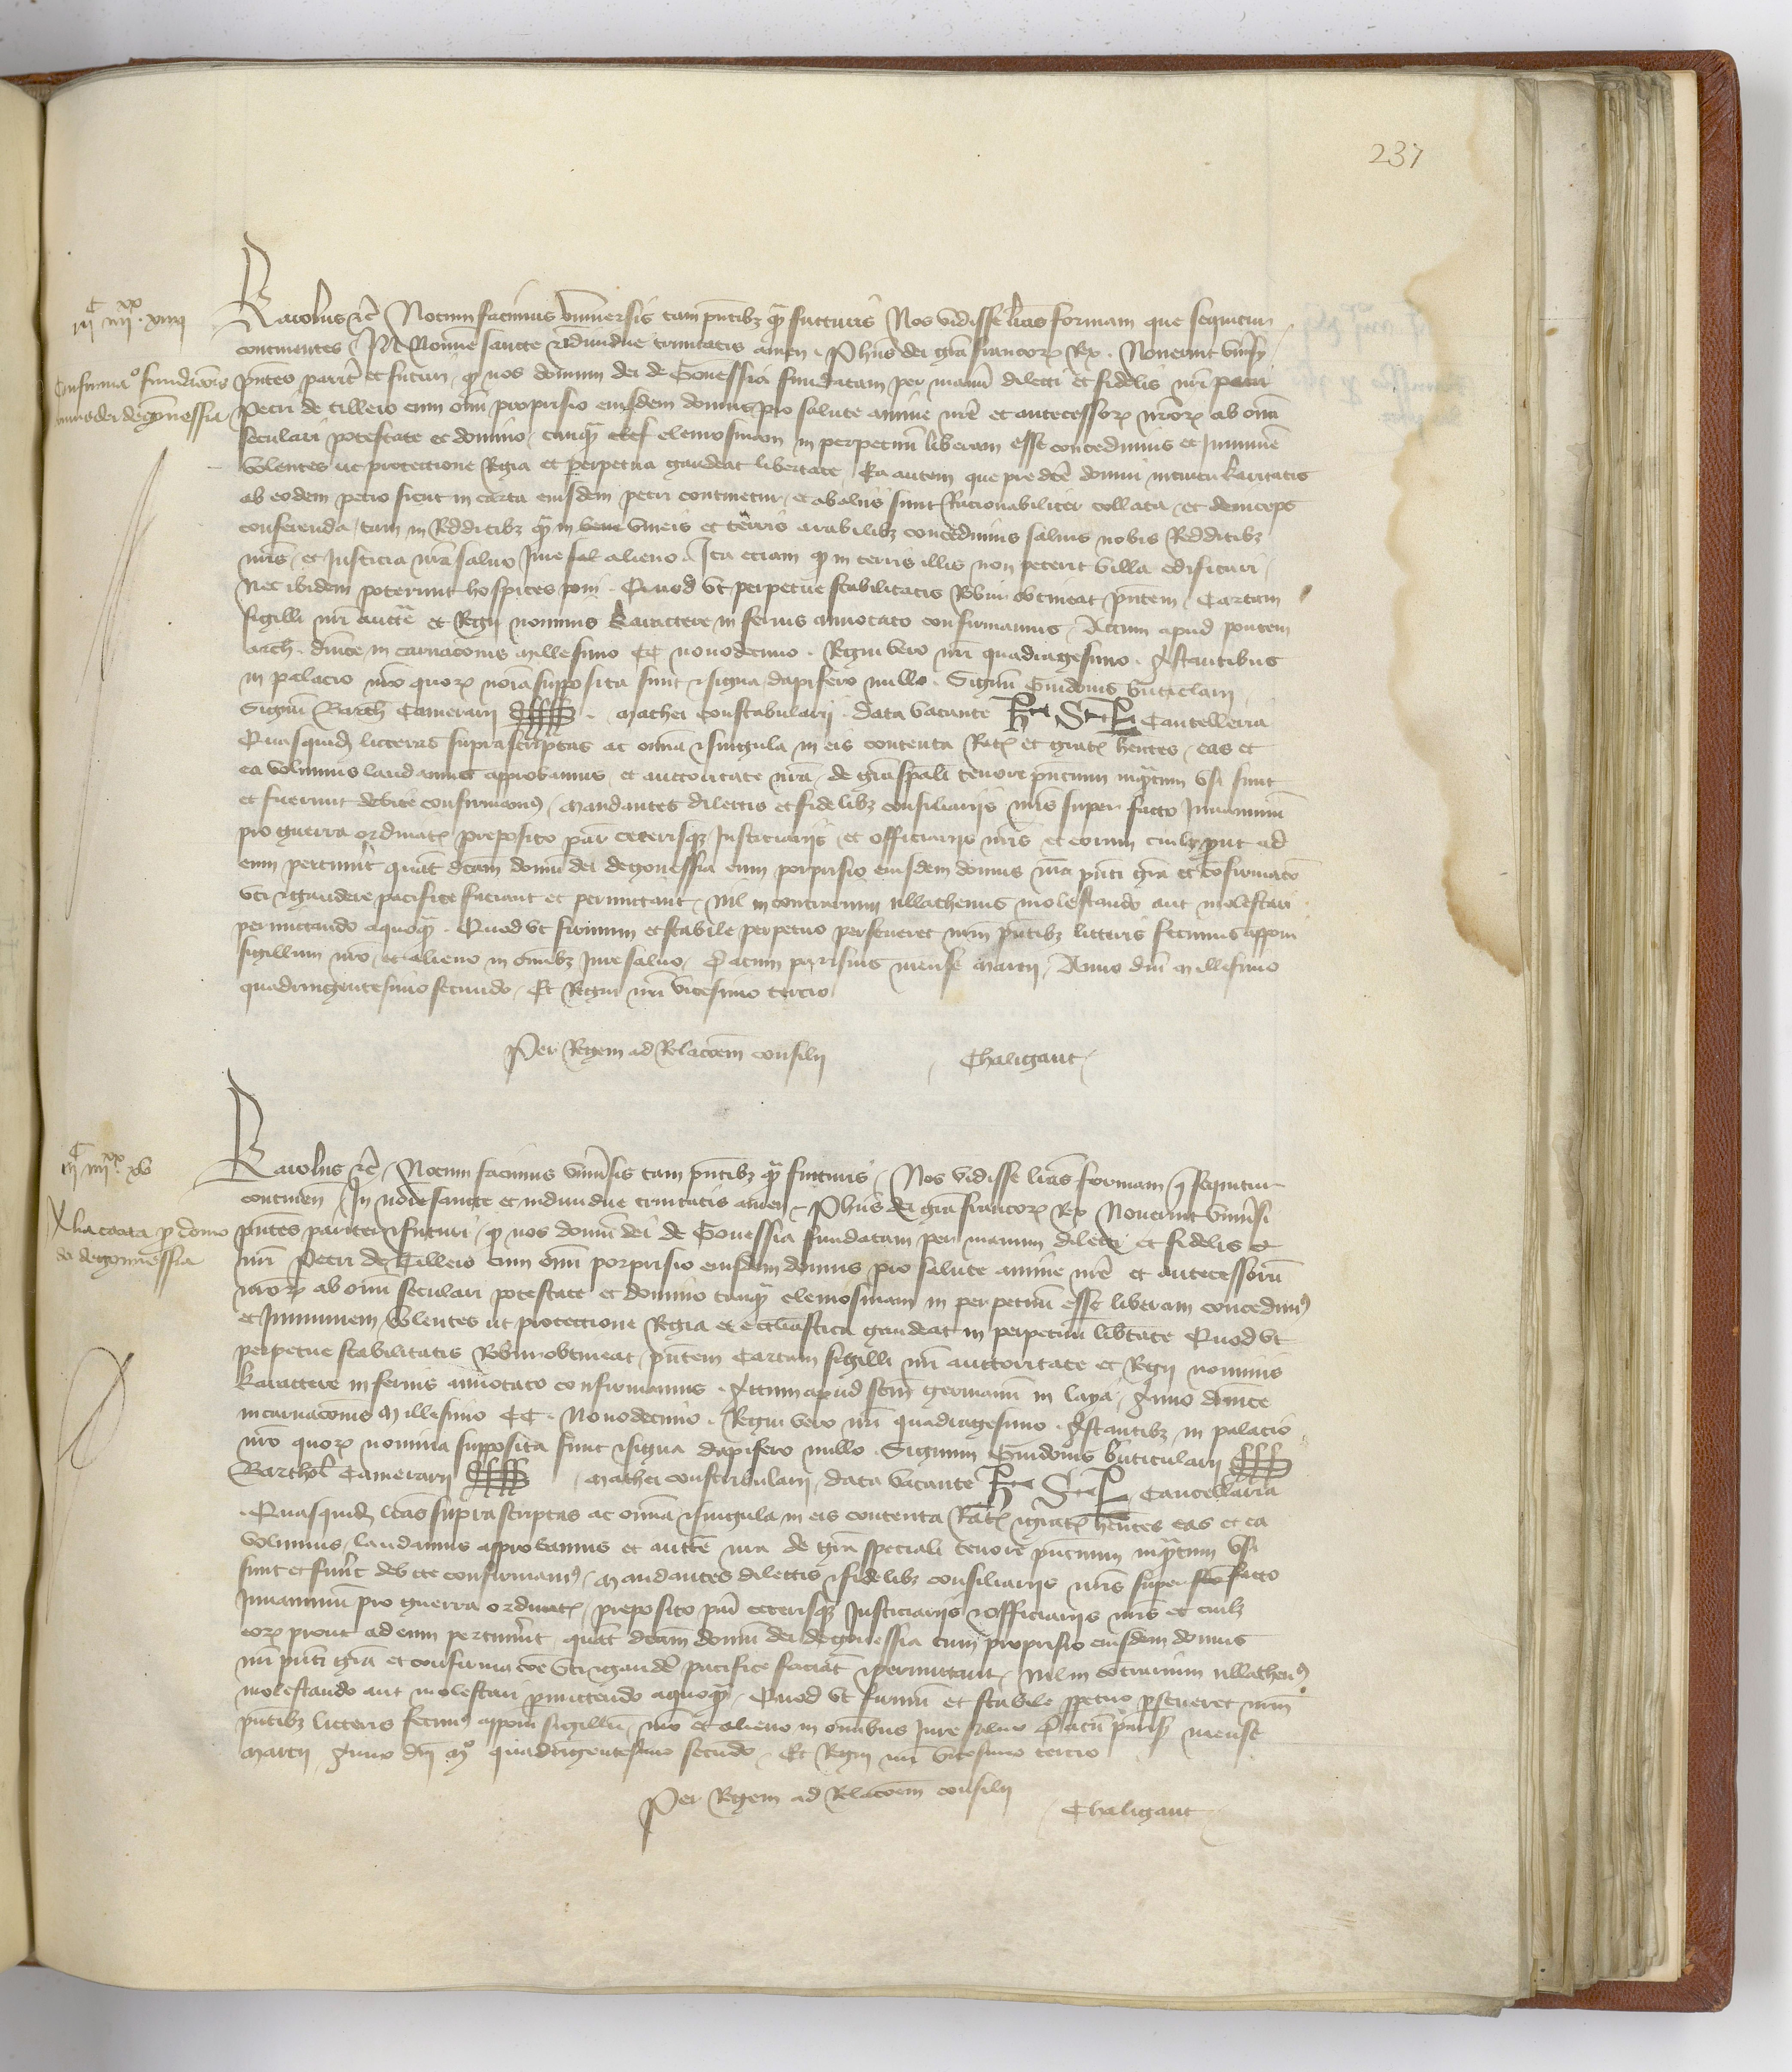 237
iijC iiijxx xiiij
Confirmacio fundacionis
domus dei de gonnessia
Karolus etc̃ Notum facimus vniuersis tam pñtibꝫ qᵃ̃ futturis Nos vidisse lr̃as formam que sequitur
continentes / IN Nomine sancte et Indiuidue trinitatis amen . Ph̃us dei grã francorꝝ Rex . Nouerint vniũsi
pñtes parit̃ et futuri / qꝫ nos domum dei de Gonessia fundatam per manũ dilecti et fidelis nr̃i
Petri de tilleio cum om̃i proprisio eiusdem domus pro salute anime nr̃e et antecessorꝝ nr̃orꝝ ab om̃i
seculari potestate et dominio / tanqᵃ̃ elemosinam in perpetuũ liberam esse concedimus et Immunẽ
volentes ut protectione Regia et perpetua gaudeat libertate / Ea autem que pre dc̃e domui intuitu karitatis
ab eodem petro sicut in carta eiusdem petri continetur / et ab aliis sunt Racionabiliter collata / et deinceps
conferenda / tam in Redditibꝫ qᵃ̃ in vineis et terris arabilibꝫ concedimus saluis nobis Redditibꝫ
nr̃is / et Justicia nr̃a saluo Jure alieno . Ita etiam qꝫ in terris illis non poterit villa edificari /
Nec ibidem poterunt hospites poni . Quod vt perpetue stabilitatis Robur obtineat pñtem / Cartam
sigilli nr̃i auct̃e et Regij nominis karactere inferius annotato confirmamus / Actum apud pontem
arch̃ . dñice incarnac̃onis Millesimo CC nonodecimo . Regni vero nr̃i quadragesimo . Astantibus
in palacio nr̃o quorꝝ noĩa supposita sunt et signa / dapifero nullo . Signũ Guidonis buticlarij
Signũ Barth̃ Camerarij . Mathei constabularij . data vacante K S L Cancellaria
Quasquidẽ litteras suprascriptas ac om̃ia et singula in eis contenta Ratꝭ et gratꝭ hẽntes / eas et
ea volumus laudamus approbamus / et auctoritate nr̃a / de grã sp̃ali tenore pñcium inqᵃ̃tum vsi sunt
et fuerunt debite confirmamꝰ / Mandantes dilectis et fidelibꝫ consiliarijs nr̃is super facto Juuaminũ
pro guerra ordinatꝭ preposito par̃ ceterisqꝫ Justiciarijs et officiarijs nr̃is et eorum cuilibꝫ put ad
eum pertinuit̃ quat̃ dc̃am domũ dei de gonessia cum porprisio eiusdem domus nr̃a pñti grã et cõfirmac̃oe
vti et gaudere pacifice faciant et permittant / nil in contrarium nllathenus molestando aut molestari
permittendo a quoqᵃ̃ . Quod vt firmum et stabile perpetuo perseueret nr̃m pñtibꝫ litteris fecimus apponi
sigillum nr̃o / et alieno in om̃ibꝫ Jure saluo / Datum parisius mense Marcij / Anno dñi Millesimo
quadringentesimo secundo . Et Regni nr̃i vicesimo tercio
Per Regem ad Relac̃oem consilij Chaligaut
iijC iiijxx xv
Alia carta p̃ domo
dei de gonnessia
Karolus etc̃ / Notum facimus vniũsis tam pñtibꝫ qᵃ̃ futuris / Nos vidisse lr̃as formam q̃ sequitur
continen̄ / In noĩe sancte et indiuidue trinitatis amen . Ph̃us dei grã francorꝝ Rex Nouerint vniũsi
pñtes pariter et futuri / qꝫ nos domũ dei de Gonessia fundatam per manum dilecti et fidelis
nr̃i Petri de Tilleio cum om̃i porprisio eiusdem domus pro salute anime nr̃e et antecessorũ
nr̃orꝝ ab om̃i seculari potestate et dominio tanqᵃ̃ elemosinam in perpetuũ esse liberam concedimꝰ
et Immunem / volentes ut protectione Regia et eccl̃iastica gaudeat in perpetuũ lib̃tate Quod vt
perpetue stabilitatis Robur obtineat / pñtem Cartam sigilli nr̃i auctoritate et Regij nominis
karactere inferius annotato confirmamus . Actum apud sc̃m germanũ in laya / Anno dñice
incarnac̃onis Millesimo CC . Nonodecimo . Regni vero nr̃i quadragesimo . Astantibꝫ in palacio
nr̃o quorꝝ nomina supposita sunt et signa dapifero nullo . Signum Guidonis buticularij
Barthol̃ Camerarij Mathei constabularij / data vacante K S L Cancellaria
Quasquidẽ lr̃as suprascriptas ac om̃ia et singula in eis contenta Ratꝭ et gratꝭ hẽntes eas et ea
volumus / laudamus approbamus et auct̃e nr̃a de grã speciali tenore pñcium inqᵃ̃tum vsi
sunt et fuer̃t debite confirmamꝰ / Mandantes dilectis et fidelibꝫ consiliarijs nr̃is super facto
Juuaminũ pro guerra ordinatꝭ / preposito par̃ ceterisqꝫ Justiciarijs et officiarijs nr̃is et cuilibꝫ
eorꝝ prout ad eum pertinuit̃ quat̃ dc̃am domũ dei de gonessia cum proprisio eiusdem domus
nr̃i pñti grã et confirmac̃oe vti et gaudẽ pacifice faciãt et permittant / Nil in cõtrarium nllathenꝰ
molestando aut molestari p̃mittendo a quoqᵃ̃ / Quod vt firmũ et stabile p̃petuo p̃seueret nr̃m
pñtibꝫ litteris fecimꝰ apponi sigillũ / nr̃o et alieno in omnibus Jure saluo Datũ parisꝫ mense
Marcij Anno dñi Mº quadringentesimo secundo . Et Regni nr̃i vicesimo tercio
Per Regem ad Relac̃oem consilij
Chaligaut